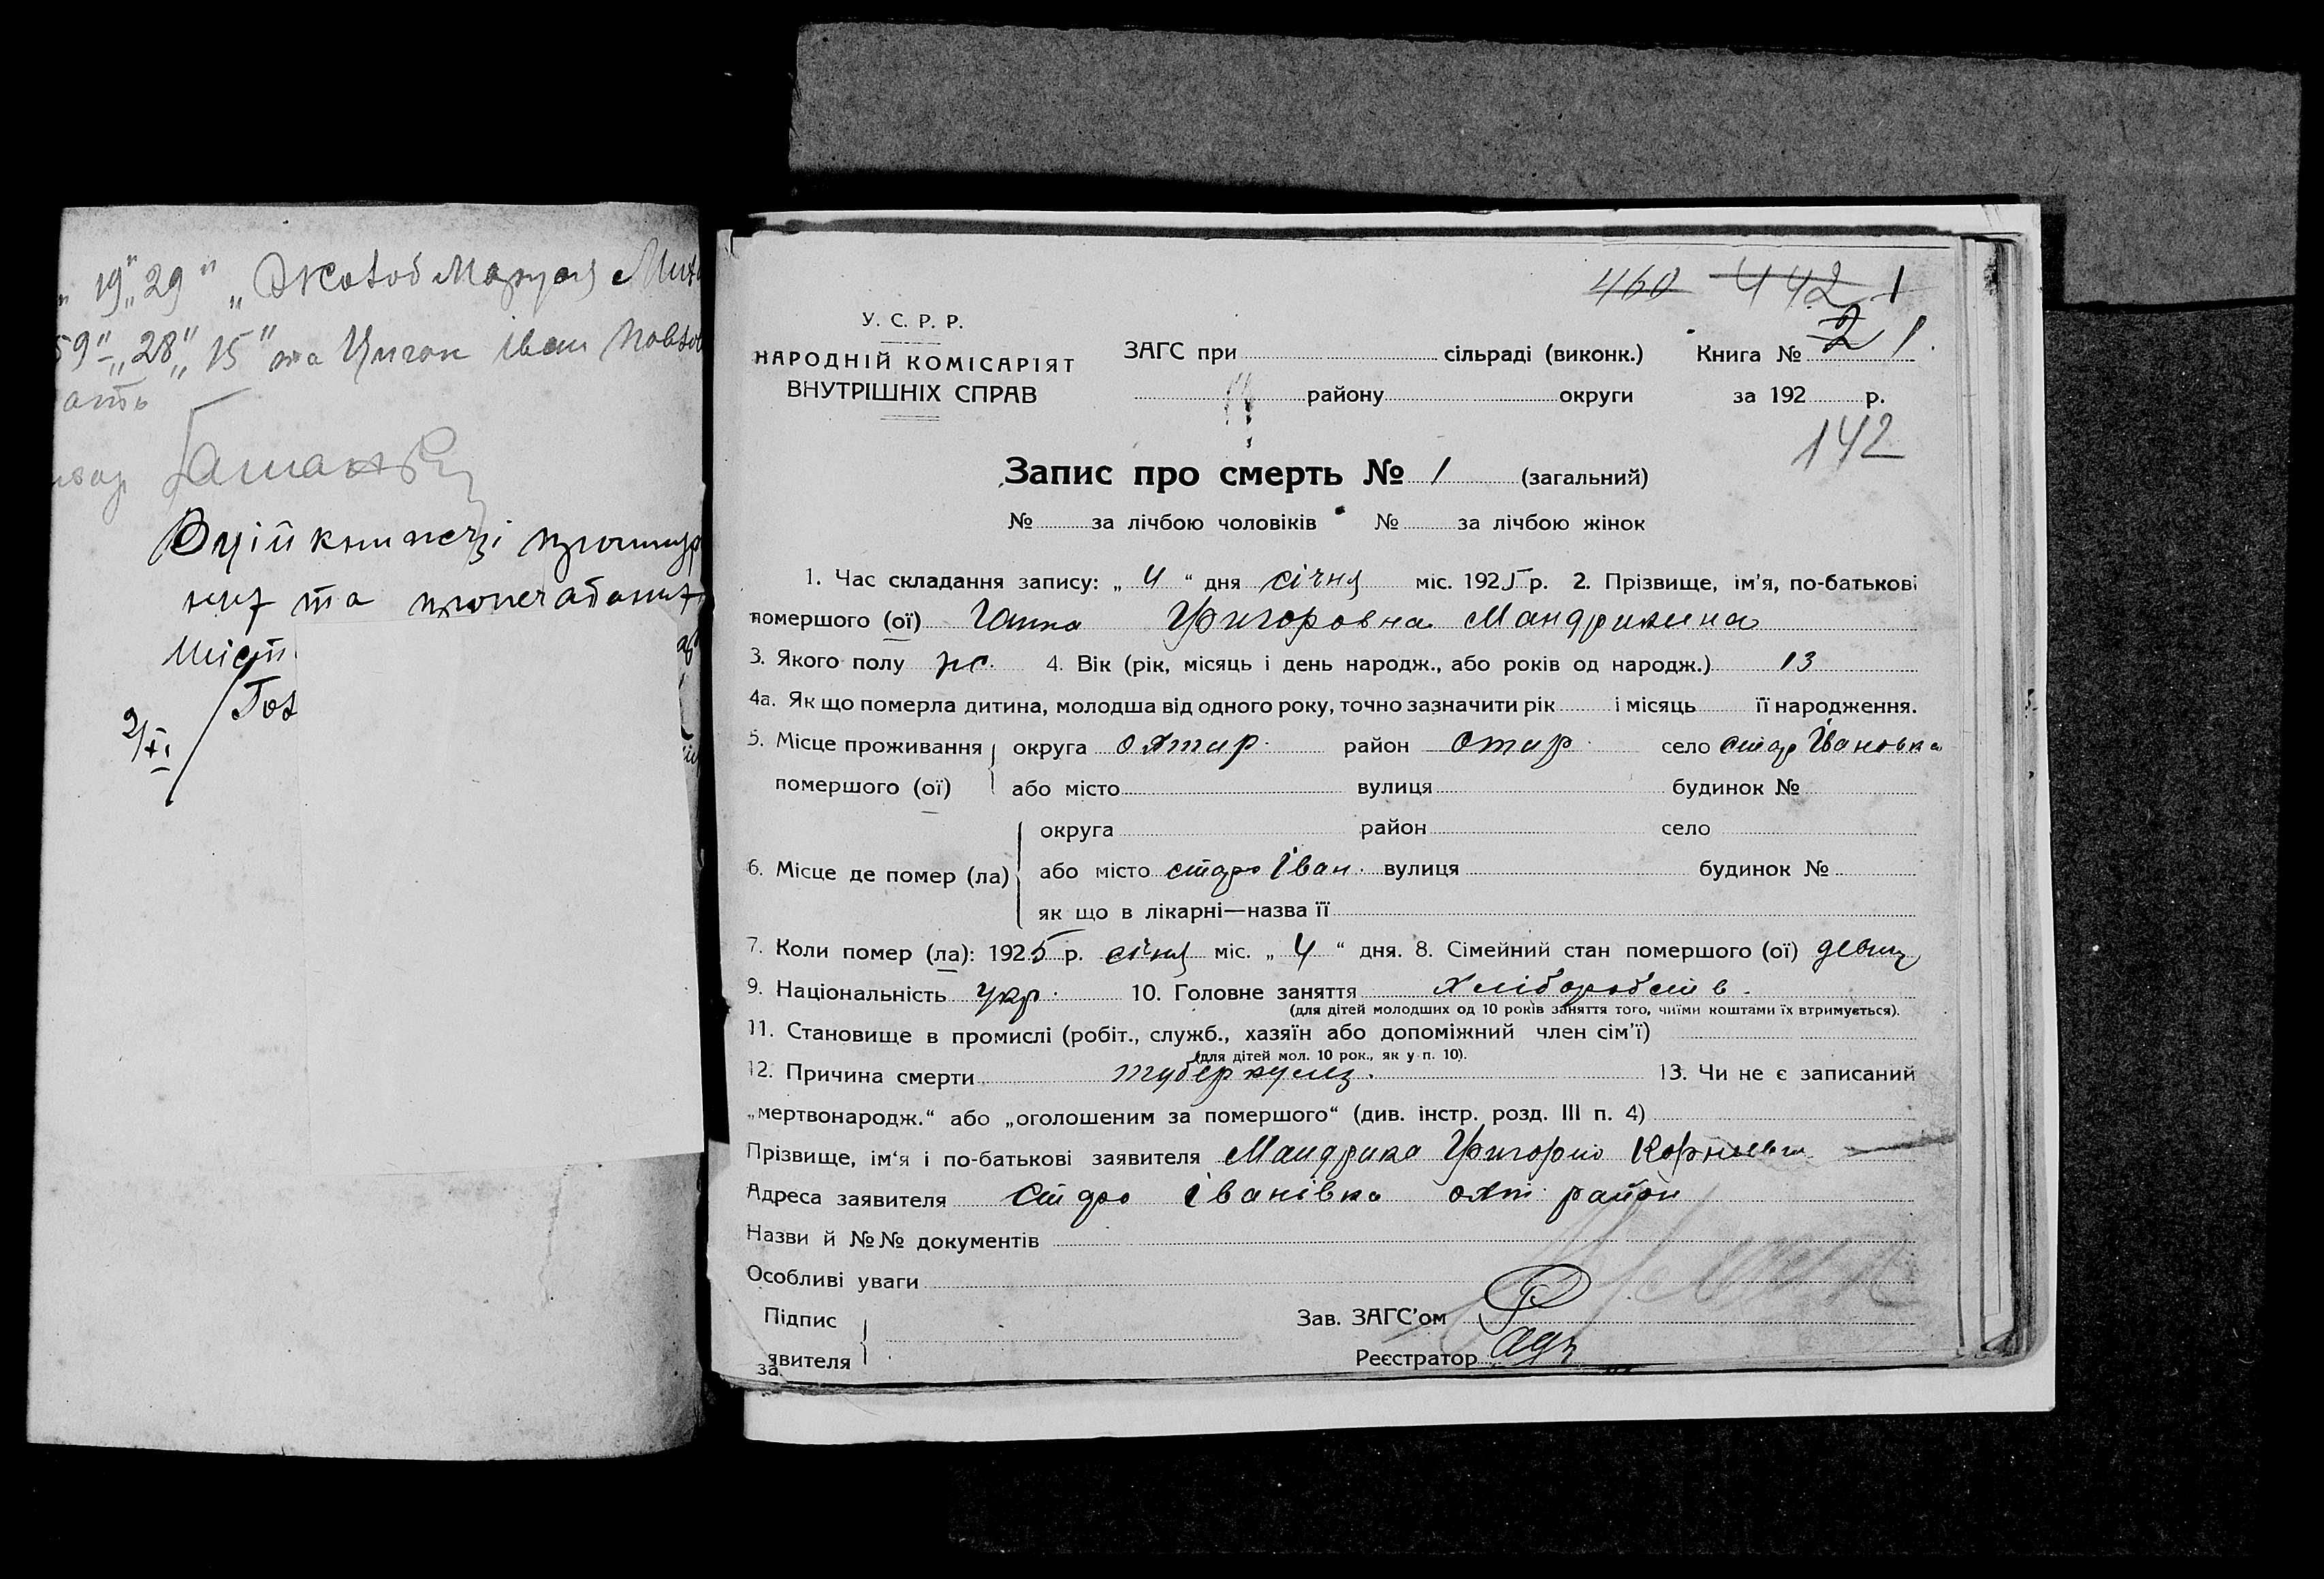 " 19 " „ 29 " „ Жовтоб Маруся Мих
59 " „ 28 " „ 15 " та Циган Іван Повтов
ать
В цій книжечці прошнур
та
Шіст
2/XI
460 442 1
У. С. Р. Р.
НАРОДНІЙ КОМІСАРІЯТ
ВНУТРІШНІХ СПРАВ
ЗАГС при сільраді (виконк.) Книга № 2 1
району округи за 192 р.
142
Запис про смерть № 1 (загальний)
№ за лічбою чоловіків № за лічбою жінок
1. Час складання запису: „ 4 “ дня січня міс. 1925 р. 2. Прізвище, ім’я, по-батькові
помершого (ої) Ганна Григоровна Мандрикина
3. Якого полу ж. 4. Вік (рік, місяць і день народж., або років од народж.) 13
4а. Як що померла дитина, молодша від одного року, точно зазначити рік і місяць її народження.
5. Місце проживання округа Охтир. район Охтир. село стар Івановка
помершого (ої) або місто вулиця будинок №
округа район село
6. Місце де помер (ла) або місто старо Іван. вулиця будинок №
як що в лікарні—назва її
7. Коли помер (ла): 1925 р. січня міс. „ 4 “ дня. 8. Сімейний стан помершого (ої) девиц
9. Національність укр. 10. Головне заняття хліборобств.
(для дітей молодших од 10 років заняття того, чиїми коштами їх втримується).
11. Становище в промислі (робіт., служб., хазяїн або допоміжний член сім’ї)
(для дітей мол. 10 рок., як у п. 10).
12. Причина смерти туберкулез. 13. Чи не є записаний
„мертвонародж.“ або „оголошеним за помершого“ (див. інстр. розд. III п. 4)
Прізвище, ім‘я і по-батькові заявителя Мандрика Григорио Корниевич
Адреса заявителя старо Іванівка охт район
Назви й №№ документів
Особливі уваги
Підпис Зав. ЗАГС’ом
заявителя Реєстратор